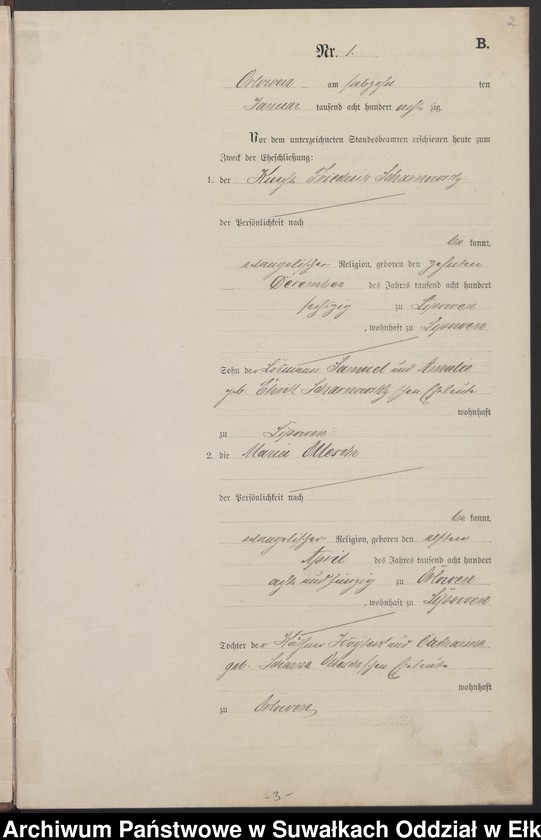 2
B.
Nr. 1.
Orlowen am ten
Januar tausend acht hundert acht zig.
Vor dem unterzeichneten Standesbeamten erschienen heute zum
Zweck der Eheschließung:
1. der Knecht Friedrich
der Persönlichkeit nach
be kannt,
evangelischer Religion, geboren den zehnten
December des Jahres tausend acht hundert
sechszig zu Lipowen
, wohnhaft zu Lipowen
Sohn der Losmann Samuel und Amalie
geb. schen Eheleute
wohnhaft
zu Lipowen
2. die Marie
der Persönlichkeit nach
be kannt,
evangelischer Religion, geboren den elften
April des Jahres tausend acht hundert
acht und fünfzig zu Orlowen
, wohnhaft zu Lipowen
Tochter der Käthner und Catharina
geb. schen Eheleute
wohnhaft
zu Orlowen
-3-
Archiwum Państwowe w Suwałkach Oddział w Ełk